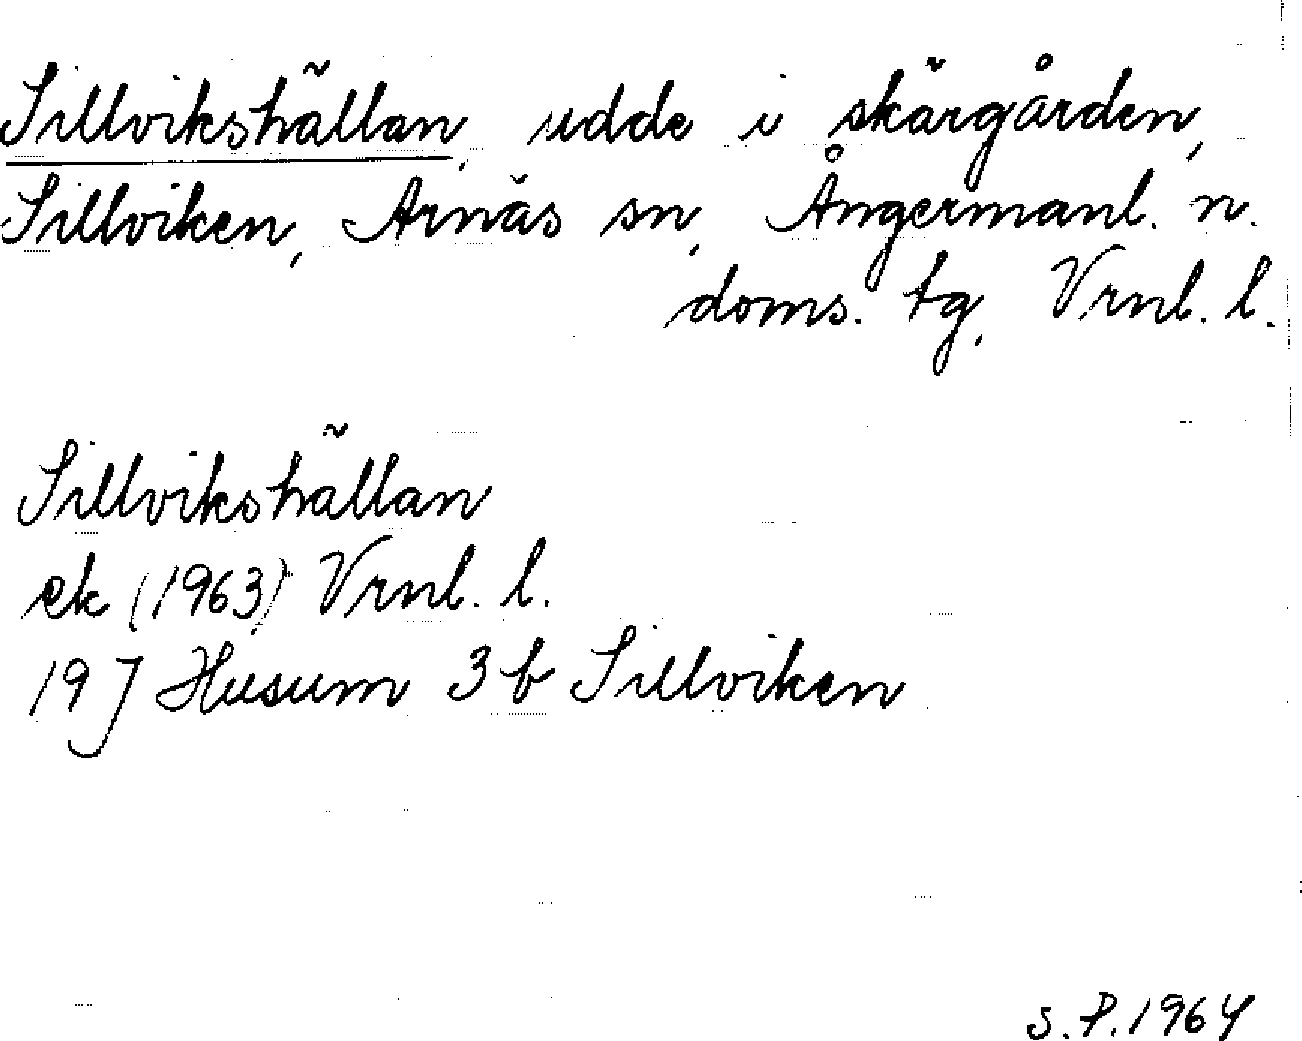 Sillvikshällan, udde i skärgården,
Sillviken, Arnäs sn, Ångermanl. n.
doms. tg, Vrnl. l.
Sillvikshällan
ek (1963) Vrnl. l.
19 J Husum 3 b Sillviken
S. P. 1964